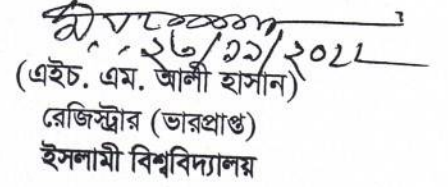 ২৩/১১/২০২২
(এইচ. এম. আলী হাসান)
রেজিস্ট্রার (ভারপ্রাপ্ত)
ইসলামী বিশ্ববিদ্যালয়